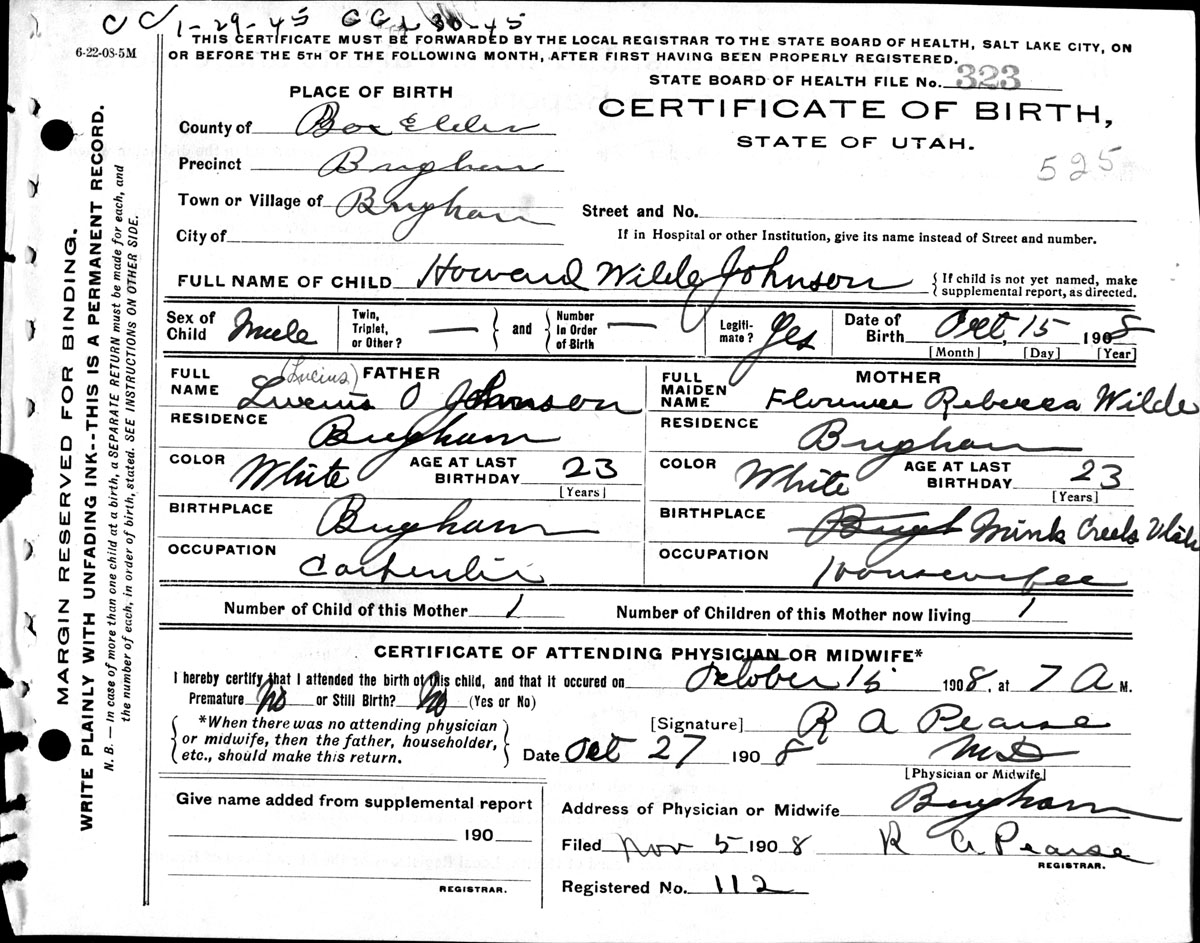 CC 1-29-45 CC 1-30-45
6-22-08-5M
THIS CERTIFICATE MUST BE FORWARDED BY THE LOCAL REGISTRAR TO THE STATE BOARD OF HEALTH, SALT LAKE CITY, ON
OR BEFORE THE 5TH OF THE FOLLOWING MONTH, AFTER FIRST HAVING BEEN PROPERLY REGISTERED.
STATE BOARD OF HEALTH FILE No. 323
CERTIFICATE OF BIRTH,
STATE OF UTAH.
525
PLACE OF BIRTH
County of Box Elder
Precinct Brigham
Town or Village of Brigham
City of
Street and No.
If in Hospital or other Institution, give its name instead of Street and number.
FULL NAME OF CHILD Howard Wilde Johnson {If child is not yet named, make supplemental report, as directed.
Sex of Child Male Twin, Triplet, or Other? — and Number in Order of Birth — Legiti-mate? Yes Date of Birth Oct, 15 1908
[Month] [Day] [Year]
FATHER
FULL NAME (Lucius) Lucius O Johnson
RESIDENCE Brigham
COLOR White AGE AT LAST BIRTHDAY 23
[Years]
BIRTHPLACE Brigham
OCCUPATION Carpenter
MOTHER
FULL MAIDEN NAME Florence Rebecca Wilde
RESIDENCE Brigham
COLOR White AGE AT LAST BIRTHDAY 23
[Years]
BIRTHPLACE Mink Creek Utah
OCCUPATION Housewife
Number of Child of this Mother 1 Number of Children of this Mother now living 1
CERTIFICATE OF ATTENDING PHYSICIAN OR MIDWIFE*
I hereby certify that I attended the birth of this child, and that it occured on October 15 1908, at 7 A M.
Premature No or Still Birth? No (Yes or No)
*When there was no attending physician
or midwife, then the father, householder,
etc., should make this return.
[Signature] R A Pearse
Date Oct 27 1908 MD
[Physician or Midwife]
Give name added from supplemental report
190
REGISTRAR.
Address of Physician or Midwife Brigham
Filed Nov 5 1908 R A Pearse
REGISTRAR.
Registered No. 112
MARGIN RESERVED FOR BINDING.
WRITE PLAINLY WITH UNFADING INK--THIS IS A PERMANENT RECORD.
N. B. — In case of more than one child at a birth, a SEPARATE RETURN must be made for each, and
the number of each, in order of birth, stated. SEE INSTRUCTIONS ON OTHER SIDE.